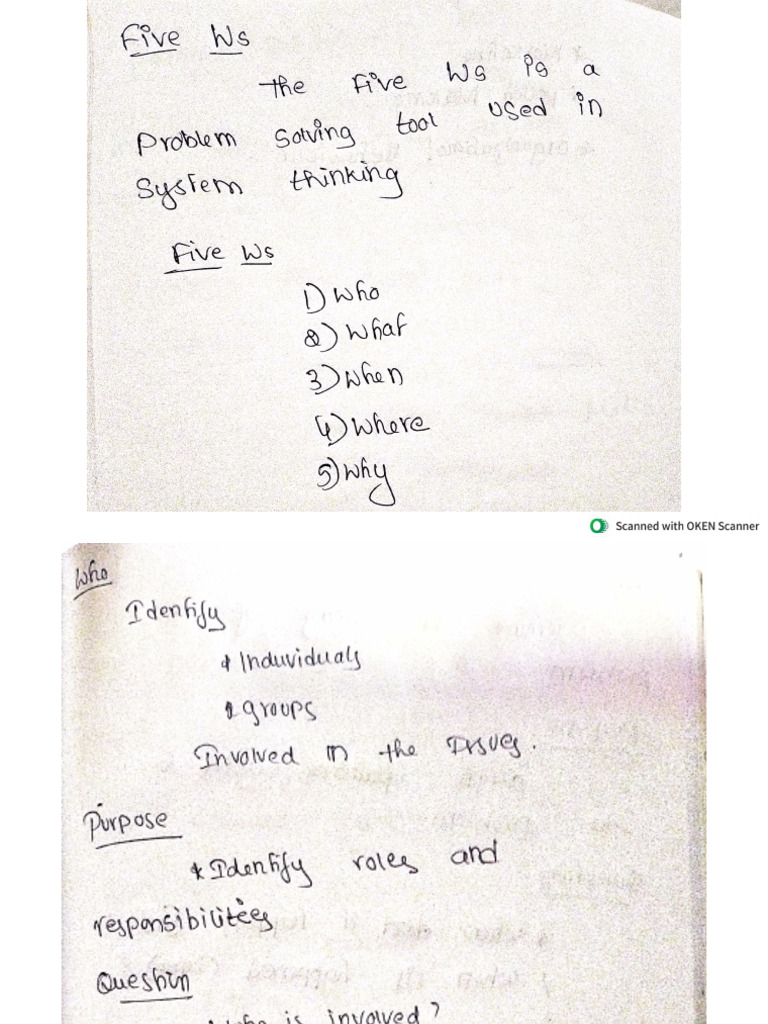 Five Ws
The Five Ws is a
Problem Solving tool used in
System thinking
Five Ws
1) Who
2) What
3) When
4) Where
5) Why
Scanned with OKEN Scanner
Who
Identify
* Induviduals
* groups
Involved in the Issues.
Purpose
* Identify roles and
responsibilitees
Question
Who is involved?